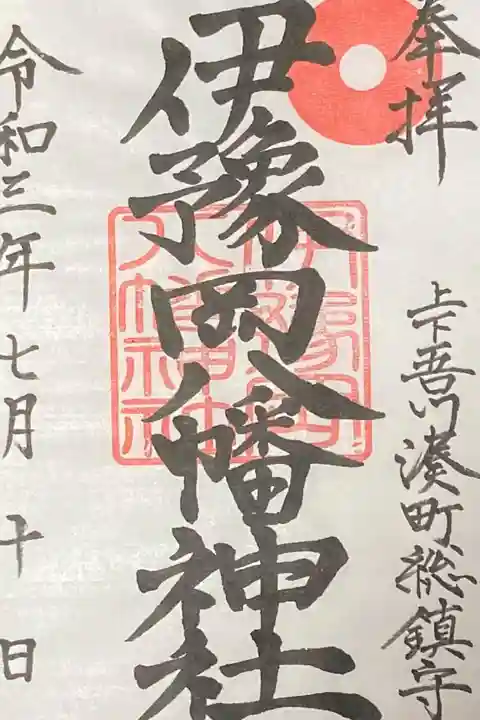 奉拝
上下吾川湊町総鎮守
伊豫岡八幡神社
伊豫岡
八幡神社
令和三年七月十日